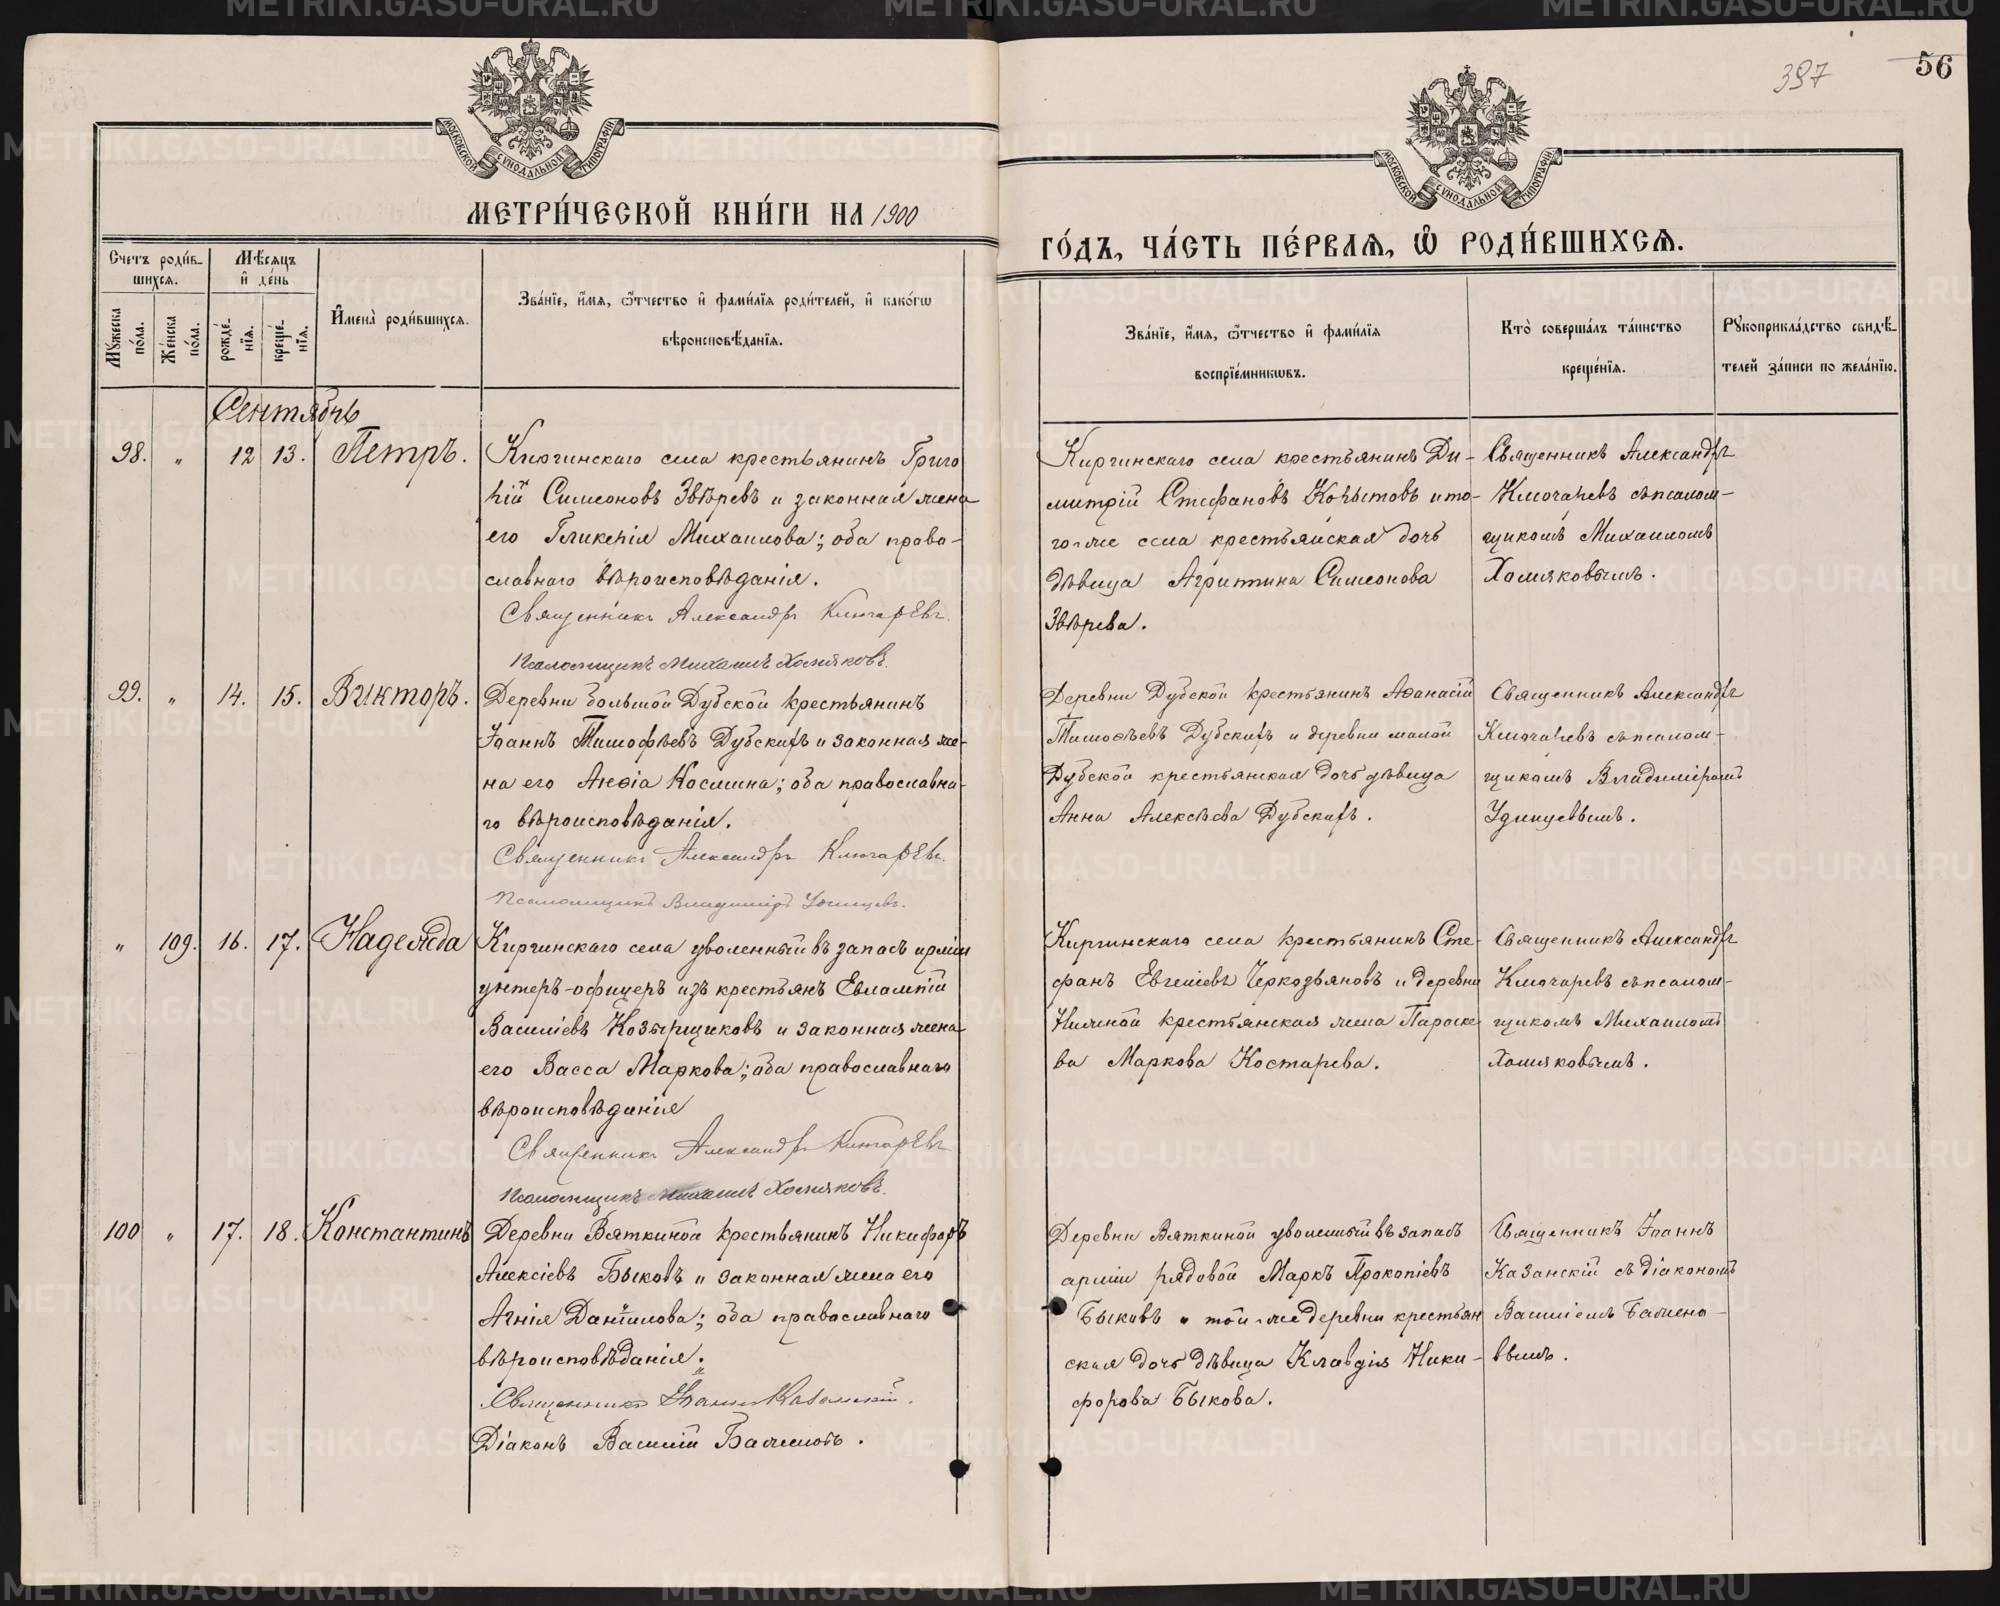 397
56
МОСКОВСКОЙ СѴНОДАЛЬНОЙ ТИПОГРАФІИ
МОСКОВСКОЙ СѴНОДАЛЬНОЙ ТИПОГРАФІИ
МЕТРИ́ЧЕСКОЙ КНИ́ГИ НА 1900
ГО́ДЪ, ЧА́СТЬ ПЕ́РВАѦ, Ѽ РОДИ́ВШИХСѦ.
Счетъ роди́в-
шихсѧ.
Мѣ́сѧцъ
и҆ де́нь
Мꙋжеска по́ла.
Же́нска по́ла.
рожде́-нїѧ.
креще́-нїѧ.
И҆мена̀ роди́вшихсѧ.
Зва́нїе, и҆́мѧ, ѻ҆́тчество и҆ фами́лїѧ роди́телей, и҆ како́гѡ
вѣроисповѣ́данїѧ.
Зва́нїе, и҆́мѧ, ѻ҆́тчество и҆ фами́лїѧ
воспрїе́мникѡвъ.
Кто̀ соверша́лъ та́инство
креще́нїѧ.
Рꙋкоприкла́дство свидѣ́-
телей за́писи по жела́нїю.
Сентябрь
98. " 12 13. Петръ.
Киргинскаго села крестьянинъ Григо
рій Симеоновъ Звѣревъ и законная жена
его Гликерія Михаилова; оба право-
славнаго вѣроисповѣданія.
Священникъ Александръ Ключаревъ.
Псаломщикъ Михаилъ Хомяковъ.
Киргинскаго села крестьянинъ Ди-
митрій Стефановъ Копытовъ и то-
го-же села крестьянская дочь
дѣвица Агриппина Симеонова
Звѣрева.
Священникъ Александръ
Ключаревъ съ псалом-
щикомъ Михаиломъ
Хомяковымъ.
99. " 14. 15. Викторъ.
Деревни большой Дубской крестьянинъ
Іоаннъ Тимофѣевъ Дубскихъ и законная же-
на его Анѳіа Космина; оба православна-
го вѣроисповѣданія.
Священникъ Александръ Ключаревъ.
Псаломщикъ Владимиръ Удинцевъ.
Деревни Дубской крестьянинъ Аѳанасій
Тимоѳѣевъ Дубскихъ и деревни малой
Дубской крестьянская дочь дѣвица
Анна Алексѣева Дубскихъ.
Священникъ Александръ
Ключаревъ съ псалом-
щикомъ Владиміромъ
Удинцевымъ.
" 109. 16. 17. Надежда
Киргинскаго села уволенный въ запасъ арміи
унтеръ-офицеръ изъ крестьянъ Евлампій
Василіевъ Козырщиковъ и законная жена
его Васса Маркова; оба православнаго
вѣроисповѣданія
Священникъ Александръ Ключаревъ
Псаломщикъ Михаилъ Хомяковъ.
Киргинскаго села крестьянинъ Сте-
фанъ Евгеніевъ Черкозьяновъ и деревни
Нижной крестьянская жена Параске-
ва Маркова Костарева.
Священникъ Александръ
Ключаревъ съ псалом-
щикомъ Михаиломъ
Хомяковымъ.
100 " 17. 18. Константинъ
Деревни Вяткиной крестьянинъ Никифоръ
Алексіевъ Быковъ и законная жена его
Агнія Даніилова; оба православнаго
вѣроисповѣданія.
Священникъ Іоаннъ Казанскій.
Діаконъ Василій Баженовъ.
Деревни Вяткиной уволенный въ запасъ
арміи рядовой Маркъ Прокопіевъ
Быковъ и той-же деревни крестьян
ская дочь дѣвица Клавдія Ники-
форова Быкова.
Священникъ Іоаннъ
Казанскій съ діакономъ
Василіемъ Бажено-
вымъ.
METRIKI.GASO-URAL.RU